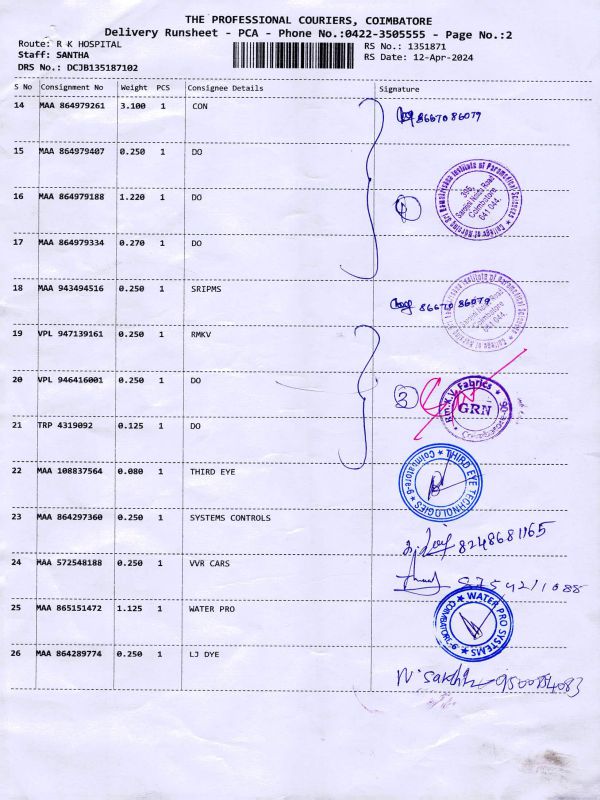 THE PROFESSIONAL COURIERS, COIMBATORE
Delivery Runsheet - PCA - Phone No.:0422-3505555 - Page No.:2
Route: R K HOSPITAL
RS No.: 1351871
Staff: SANTHA
RS Date: 12-Apr-2024
DRS No.: DCJB135187102
S No Consignment No Weight PCS Consignee Details Signature
14 MAA 864979261 3.100 1 CON
86670 86079
15 MAA 864979407 0.250 1 DO
16 MAA 864979188 1.220 1 DO
4
Sri Ramakrishna Institute of Paramedical Sciences * College of Nursing
395,
Sarojini Naidu Road
Coimbatore
641 044.
17 MAA 864979334 0.270 1 DO
18 MAA 943494516 0.250 1 SRIPMS
86670 86079
Sarojini Naidu Road
Coimbatore
641 044.
19 VPL 947139161 0.250 1 RMKV
20 VPL 946416001 0.250 1 DO
3
Rm.K.V. Fabrics
GRN
21 TRP 4319092 0.125 1 DO
22 MAA 108837564 0.080 1 THIRD EYE
THIRD EYE TECHNOLOGIES * Coimbatore-9 *
23 MAA 864297360 0.250 1 SYSTEMS CONTROLS
8248681165
24 MAA 572548188 0.250 1 VVR CARS
25 MAA 865151472 1.125 1 WATER PRO
WATER PRO SYSTEMS * COIMBATORE-9 *
26 MAA 864289774 0.250 1 LJ DYE
N. Sakthi